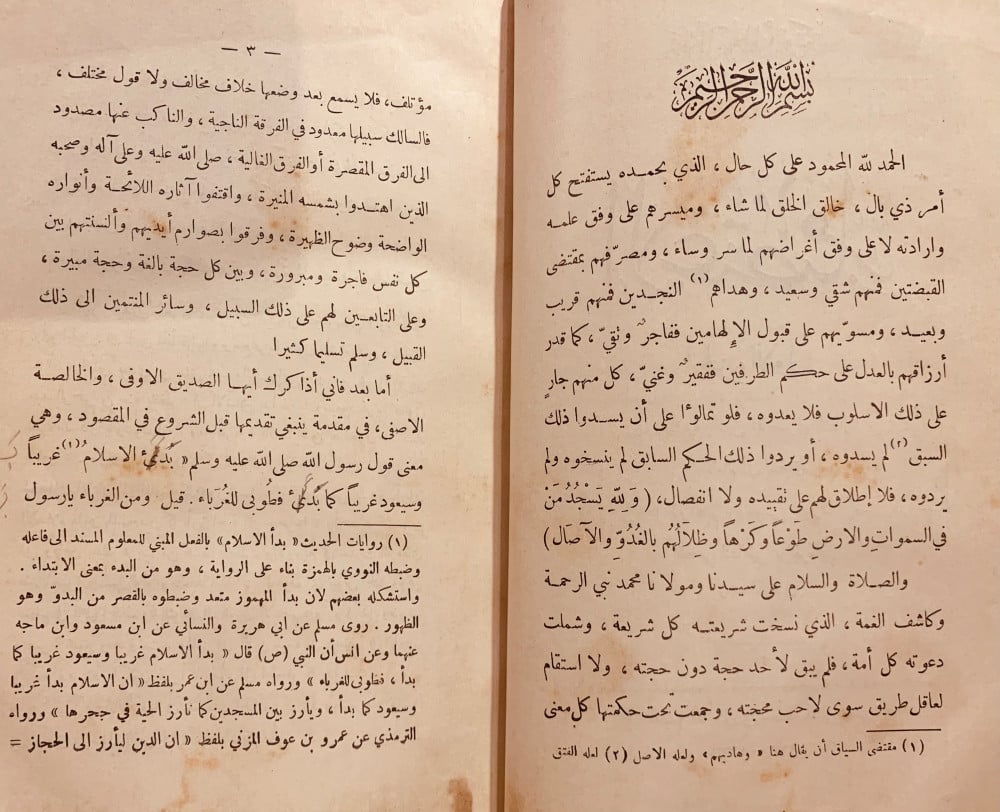 بسم الله الرحمن الرحيم
الحمد لله المحمود على كل حال ، الذي بحمده يستفتح كل
أمر ذي بال ، خالق الخلق لما شاء ، وميسرهم على وفق علمه
وارادته لا على وفق أغراضهم لما سر وساء ، ومصرّفهم بمقتضى
القبضتين فمنهم شقي وسعيد ، وهداهم (١) النجدين فمنهم قريب
وبعيد ، ومسوّيهم على قبول الإلهامين ففاجرٌ وتقيّ ، كما قدر
أرزاقهم بالعدل على حكم الطرفين ففقيرٌ وغنيّ ، كل منهم جارٍ
على ذلك الاسلوب فلا يعدوه ، فلو تمالؤا على أن يسدوا ذلك
السبق (٢) لم يسدوه ، أو يردوا ذلك الحكم السابق لم ينسخوه ولم
يردوه ، فلا إطلاق لهم على تقييده ولا انفصال ، ( وَلِلهِ يَسْجُدُ مَنْ
في السموات والارضِ طَوْعاً وكَرْهاً وظِلاَلُهُم بالغُدُوِّ والآصَال )
والصلاة والسلام على سيدنا ومولانا محمد نبي الرحمة
وكاشف الغمة ، الذي نسخت شريعته كل شريعة ، وشملت
دعوته كل أمة ، فلم يبق لأحد حجة دون حجته ، ولا استقام
لعاقل طريق سوى لاحب محجته ، وجمعت تحت حكمتها كل معنى
(١) مقتضى السياق أن يقال هنا « وهاديهم » ولعله الاصل (٢) لعله الفتق
— ٣ —
مؤتلف ، فلا يسمع بعد وضعها خلاف مخالف ولا قول مختلف ،
فالسالك سبيلها معدود في الفرقة الناجية ، والناكب عنها مصدود
الى الفرق المقصرة أو الفرق الغالية ، صلى الله عليه وعلى آله وصحبه
الذين اهتدوا بشمسه المنيرة ، واقتفوا آثاره اللائحة وأنواره
الواضحة وضوح الظهيرة ، وفرقوا بصوارم أيديهم وألسنتهم بين
كل نفس فاجرة ومبرورة ، وبين كل حجة بالغة وحجة مبيرة ،
وعلى التابعين لهم على ذلك السبيل ، وسائر المنتمين الى ذلك
القبيل ، وسلم تسليما كثيرا
أما بعد فاني أذاكرك أيها الصديق الاوفى ، والخالصة
الاصفى ، في مقدمة ينبغي تقديمها قبل الشروع في المقصود ، وهي
معنى قول رسول الله صلى الله عليه وسلم « بُدئ الاسلامُ (١) غريباً
وسيعود غريباً كما بُدئ فطُوبى للغُرَباء . قيل ومن الغرباء يارسول
(١) روايات الحديث « بدأ الاسلام » بالفعل المبني للمعلوم المسند الى فاعله
وضبطه النووي بالهمزة بناء على الرواية ، وهو من البدء بمعنى الابتداء .
واستشكله بعضهم لان بدأ المهموز متعد وضبطوه بالقصر من البدوّ وهو
الظهور . روى مسلم عن ابي هريرة والنسائي عن ابن مسعود وابن ماجه
عنهما وعن انس أن النبي (ص) قال « بدأ الاسلام غريبا وسيعود غريبا كما
بدأ ، فطوبى للغرباء » ورواه مسلم عن ابن عمر بلفظ « ان الاسلام بدأ غريبا
وسيعود كما بدأ ، ويأرز بين المسجدين كما تأرز الحية في جحرها » ورواه
الترمذي عن عمرو بن عوف المزني بلفظ « ان الدين ليأرز الى الحجاز =